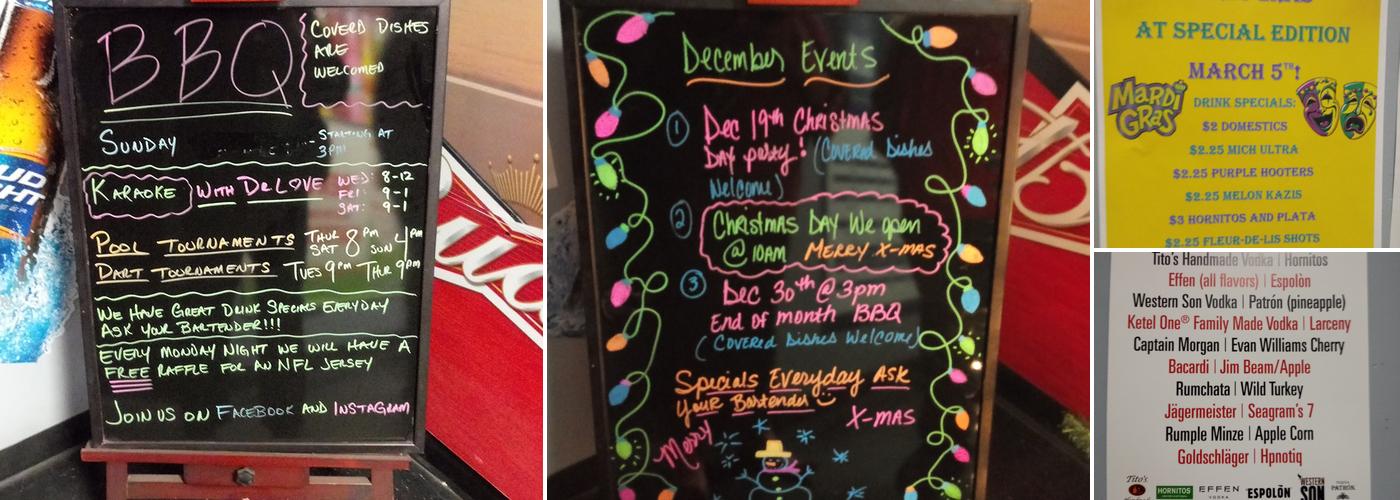 BBQ
COVERD DISHES
ARE
WELCOMED
SUNDAY
STARTING AT
3PM
KARAOKE WITH DELOVE WED: 8-12
FRI: 9-1
SAT: 9-1
POOL TOURNAMENTS THUR 8PM
SAT SUN 4PM
DART TOURNAMENTS TUES 9PM THUR 9PM
WE HAVE GREAT DRINK SPECIALS EVERYDAY
ASK YOUR BARTENDER!!!
EVERY MONDAY NIGHT WE WILL HAVE A
FREE RAFFLE FOR AN NFL JERSEY
JOIN US ON FACEBOOK AND INSTAGRAM
December Events
1 Dec 19th Christmas
Day party! (Covered Dishes
Welcome)
2 Christmas Day We open
@ 10AM MERRY X-MAS
3 Dec 30th @ 3pm
End of month BBQ
(Covered Dishes Welcome)
Specials Everyday Ask
Your Bartender
Merry X-MAS
AT SPECIAL EDITION
MARCH 5TH!
MARDI GRAS
DRINK SPECIALS:
$2 DOMESTICS
$2.25 MICH ULTRA
$2.25 PURPLE HOOTERS
$2.25 MELON KAZIS
$3 HORNITOS AND PLATA
$2.25 FLEUR-DE-LIS SHOTS
Tito's Handmade Vodka | Hornitos
Effen (all flavors) | Espolòn
Western Son Vodka | Patrón (pineapple)
Ketel One® Family Made Vodka | Larceny
Captain Morgan | Evan Williams Cherry
Bacardi | Jim Beam/Apple
Rumchata | Wild Turkey
Jägermeister | Seagram's 7
Rumple Minze | Apple Corn
Goldschläger | Hpnotiq
Tito's HORNITOS EFFEN VODKA ESPOLÒN WESTERN SON PATRÓN